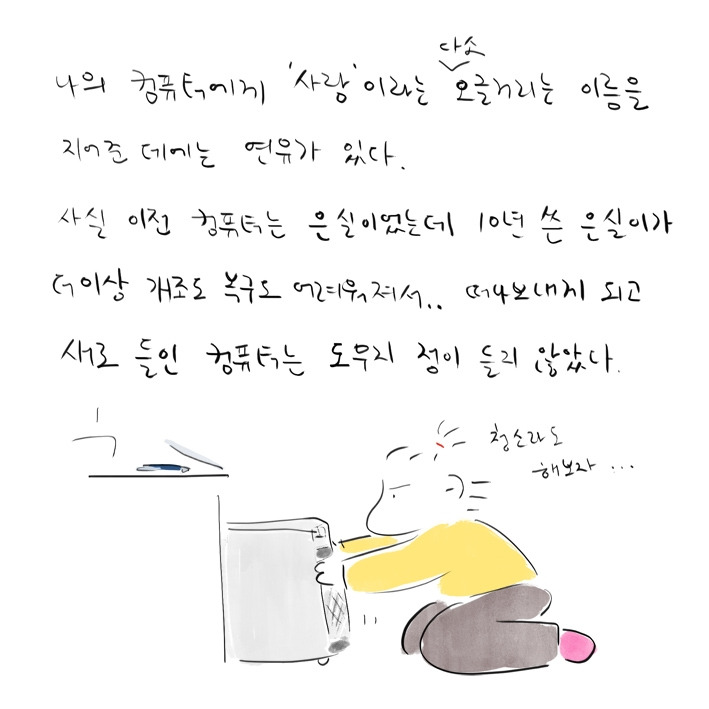 나의 컴퓨터에게 '사랑'이라는 다소 오글거리는 이름을
지어준 데에는 연유가 있다.
사실 이전 컴퓨터는 은실이었는데 10년 쓴 은실이가
더이상 개조도 복구도 어려워져서.. 떠나보내게 되고
새로 들인 컴퓨터는 도무지 정이 들지 않았다.
청소라도
해보자 ...